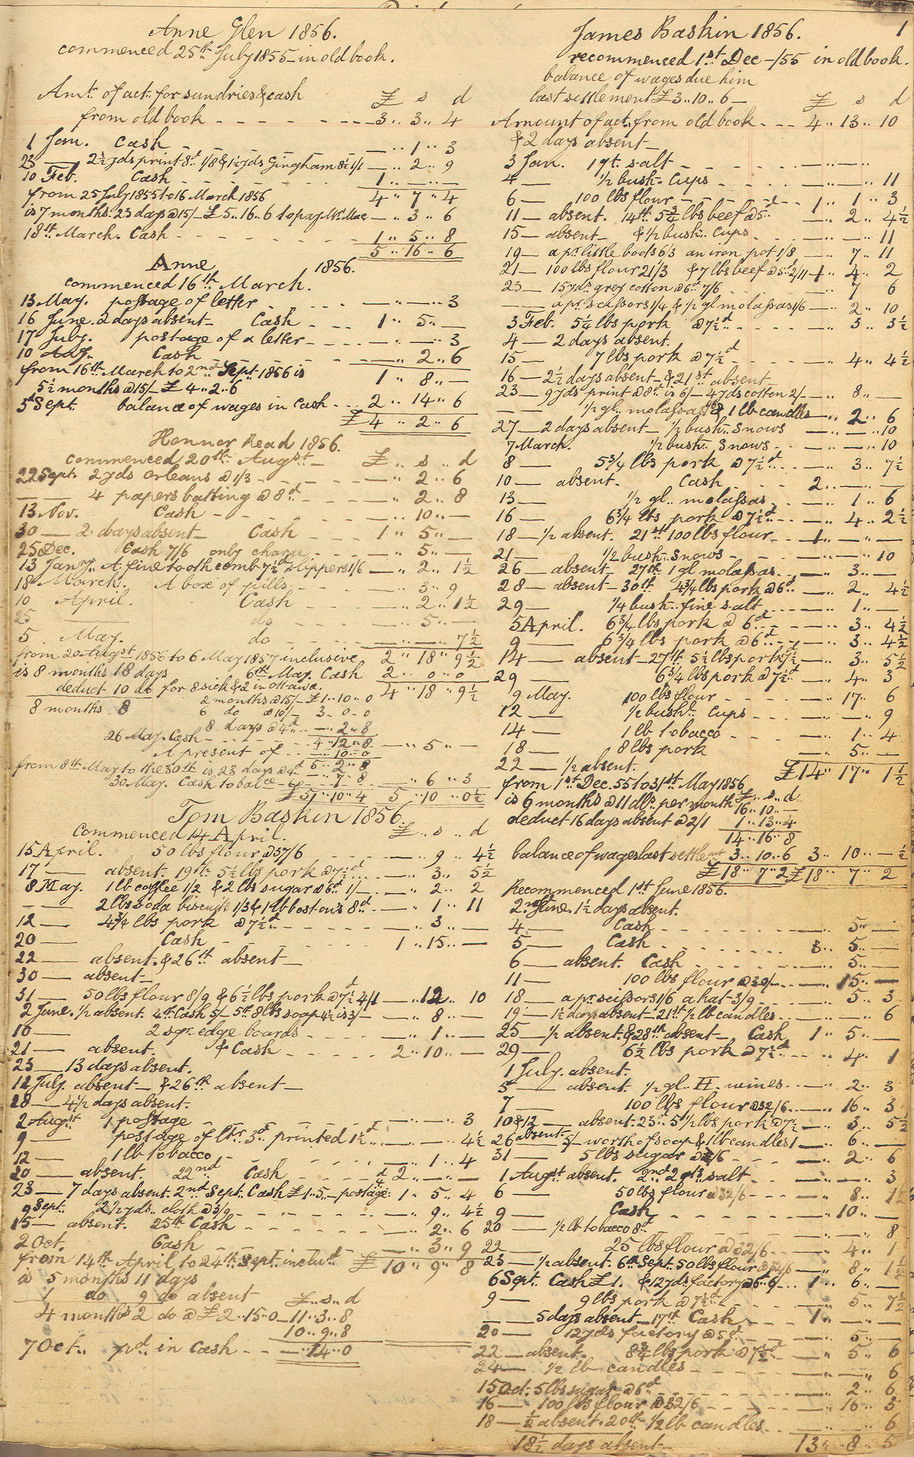 Anne Glen 1856.
commenced 25th July 1855 in old book.
Amt. of act. for sundries & cash £ s d
from old book - - - - - - 3 .. 3 .. 4
1 Jany. Cash - - - - - — .. 1 .. 3
23 — 2½ yds print 8d 1/8 & 1½ yds Gingham 8½ 1/1 — .. 2 .. 9
10 Feb. Cash - - - 1 .. — .. —
from 25 July 1855 to 16 March 1856 4 .. 7 .. 4
is 7 months 23 days @ 15/- £5 .. 16 .. 6 — .. 3 .. 6
18th March. Cash - - - 1 .. 5 .. 8
5 .. 16 .. 6
Anne 1856.
commenced 16th March.
13 May. postage of letter - - - — .. — .. 3
16 June. 2 days absent — Cash - - 1 .. 5 .. —
17 July. postage of a letter - - - — .. — .. 3
10 Cash - - - — .. 2 .. 6
from 16th March to 2nd Sept 1856 is 1 .. 8 .. —
5½ months @ 15/- £4 .. 2 .. 6
5th Sept. balance of wages in cash - - - 2 .. 14 .. 6
£4 .. 2 .. 6
Honner Read 1856.
commenced 20th August — £ .. s .. d
22 Sept. 2 yds Orleans @ 1/3 - - - — .. 2 .. 6
— — 4 papers batting @ 8d - - - — .. 2 .. 8
13 Nov. Cash - - - — .. 10 .. —
30 — 2 days absent — Cash - - 1 .. 5 .. —
25 Dec. Cash 7/6 only charge - - - — .. 5 .. —
13 Jany. A fine tooth comb 7½ slippers 1/6 — .. 2 .. 1½
18 — March. A box of pills - - - — .. 3 .. 9
10 April. Cash - - - — .. 2 .. 1½
25 — do - - - — .. 5 .. —
5 May. do - - - — .. — .. 7½
from 20 August 1856 to 6 May 1857 inclusive 2 .. 18 .. 9½
is 8 months 18 days 6th May. Cash 2 .. 0 .. 0
deduct 10 do for 8 sick & 2 in ottawa 4 .. 18 .. 9½
8 months 8 2 months @ 15/- £1 .. 10 .. 0
6 do @ 10/- 3 .. 0 .. 0
8 days @ 4d - - — .. 2 .. 8
26 May. Cash - - 4 .. 12 .. 8 — .. 5 .. —
A present of - - — .. 10 .. 0
from 8th May to the 30th is 23 days @ 4d 5 .. 2 .. 8
30 May. Cash to balce — 7 .. 8 — .. 6 .. 3
£5 .. 10 .. 4 5 .. 10 .. 0½
Tom Baskin 1856.
Commenced 14 April. £ .. s .. d
15 April. 50 lbs flour @ 37/6 - - - — .. 9 .. 4½
17 — absent. 19th 5½ lbs pork @ 7½d - - — .. 3 .. 5½
8 May. 1 lb coffee 1/2 & 2 lbs sugar @ 6d 1/- — .. 2 .. 2
— — 2 lbs soda biscuits 1/3 & 1 lb 8d - - — .. 1 .. 11
12 — 4¾ lbs pork @ 7½d - - — .. 3 .. —
20 — Cash - - - 1 .. 15 .. —
22 — absent. & 26th absent —
30 — absent —
31 — 50 lbs flour 8/9 & 6½ lbs pork @ 7½d 4/1 — .. 12 .. 10
2 June. ½ absent. 4th Cash 5/- 5th 8 lbs soap 4½ is 3/- — .. 8 .. —
16 — 2 sqr. edge boards - - - — .. 1 .. —
21 — absent. & Cash - - - 2 .. 10 .. —
23 — 13 days absent.
12 July. absent — & 26th absent —
28 — 4½ days absent.
2 August 1 postage - - - — .. — .. 3
9 — postage of ltr. 3d. printed 1½d - - — .. — .. 4½
12 — 1 lb tobacco - - - — .. 1 .. 4
20 — absent. 22nd Cash - - - 2 .. — .. —
23 — 7 days absent. 2nd Sept. Cash £1 .. 5 — postage 4d 1 .. 5 .. 4
9 Sept. 2½ yds cloth @ 3/9 - - - — .. 9 .. 4½
15 — absent. 25th Cash - - - — .. 2 .. 6
2 Oct. Cash - - - — .. 3 .. 9
from 14th April to 24th Sept. inclust £10 .. 9 .. 8
is 5 months 11 days
1 do 9 do absent £ .. s .. d
4 months 2 do @ £2 .. 15 .. 0 — 11 .. 3 .. 8
10 .. 9 .. 8
7 Oct. pd. in Cash - - - — 14 .. 0
1
James Baskin 1856.
recommenced 1st Dec -/55 in old book.
balance of wages due him
last settlement £3 .. 10 .. 6 — £ s d
Amount of act. from old book - - - 4 .. 13 .. 10
& 2 days absent —
3 Jany. 1 qt. salt - - - — .. — .. —
4 — ½ bush. Cups - - - — .. — .. 11
6 — 100 lbs flour - - - 1 .. 1 .. 3
11 — absent. 14th 5¾ lbs beef @ 5d - - — .. 2 .. 4½
15 — absent & ½ bush. Cups - - - — .. — .. 11
19 — a pr. little boots 6/3 an iron pot 1/8 — .. 7 .. 11
21 — 100 lbs flour 21/3 & 7 lbs beef @ 5d 2/11 1 .. 4 .. 2
23 — 15 yds. grey cotton @ 6d 7/6 - - — .. 7 .. 6
— — a pr. scissors 1/4 & ½ gl molassas 1/6 — .. 2 .. 10
3 Feb. 5¼ lbs pork @ 7½d - - — .. 3 .. 3½
4 — 2 days absent.
15 — 7 lbs pork @ 7½d - - — .. 4 .. 4½
16 — 2½ days absent & 21st absent —
23 — 9 yds print @ 8d is 6/- 4 yds cotton 2/- — .. 8 .. —
— — ½ gl. molassas & 1 lb candles — .. 2 .. 6
27 — 2 days absent — ½ bush. Snows - - — .. — .. 10
7 March. ½ bush. Snows - - — .. — .. 10
8 — 5¾ lbs pork @ 7½d - - — .. 3 .. 7½
10 — absent. Cash - - - 2 .. — .. —
13 — ½ gl. molassas - - - — .. 1 .. 6
16 — 6¾ lbs pork @ 7½d - - — .. 4 .. 2½
18 — ½ absent. 21st 100 lbs flour - - 1 .. — .. —
21 — ½ bush. Snows - - - — .. — .. 10
26 — absent. 27th 1 gl molassas - - — .. 3 .. —
28 — absent — 30th 4¾ lbs pork @ 6d — .. 2 .. 4½
29 — ¼ bush. fine salt - - - — .. 1 .. —
5 April. 6¾ lbs pork @ 6d - - — .. 3 .. 4½
9 — 6¾ lbs pork @ 6d - - — .. 3 .. 4½
14 — absent — 27th 5½ lbs pork 7½ — .. 3 .. 5½
29 — 6¾ lbs pork @ 7½d - - — .. 4 .. 3
9 May. 100 lbs flour - - - — .. 17 .. 6
12 — ½ bush. Cups - - - — .. — .. 9
14 — 1 lb tobacco - - - — .. 1 .. 4
18 — 8 lbs pork — .. 5 .. —
22 — ½ absent. £14 .. 17 .. 1½
from 1st Dec. 55 to 31st May 1856
is 6 months @ 11 dlls. per month £ .. s .. d
16 .. 10 .. —
deduct 16 days absent @ 2/1 1 .. 13 .. 4
14 .. 16 .. 8
balance of wages last settlemt 3 .. 10 .. 6 3 .. 10 .. — ½
£18 .. 7 .. 2 £18 .. 7 .. 2
Recommenced 1st June 1856.
2nd June. 1½ days absent.
4 — Cash - - - — .. 5 .. —
5 — Cash - - - 3 .. 5 .. —
6 — absent. Cash - - - — .. 5 .. —
11 — 100 lbs flour @ 30/- - - — .. 15 .. —
18 — a pr. scissors 1/6 a hat 3/9 - - — .. 5 .. 3
19 — 1½ days absent — 21st ½ lb candles - - — .. — .. 6
25 — ½ absent & 28th absent — Cash 1 .. 5 .. —
29 — 6½ lbs pork @ 7½d - - — .. 4 .. 1
1 July. absent.
5 — absent. ½ gl. H. wines - - — .. 2 .. 3
7 — 100 lbs flour @ 32/6 - - — .. 16 .. 3
10 & 12 — absent. 23d 5½ lbs pork @ 7½ — .. 3 .. 5½
26 absent. 5/- worth of soap & 1 lb candles 1 — .. 6 .. —
31 — 5 lbs sugar @ 6 - - — .. 2 .. 6
1 August absent. 2nd 2 qts. salt - - — .. — .. 3
6 — 50 lbs flour @ 32/6 - - — .. 8 .. 1½
9 — Cash - - - — .. 10 .. —
20 — ½ lb tobacco 8d - - - — .. — .. 8
22 — 25 lbs flour @ 32/6 - - — .. 4 .. 1
23 — ½ absent. 6th Sept. 50 lbs flour @ 32/6 — .. 8 .. 1½
6 Sept. Cash £1. & 12 yds factory @ 6d 6/- 1 .. 6 .. —
9 — 9 lbs pork @ 7½d - - — .. 5 .. 7½
— — 5 days absent — 17th Cash - - 1 .. — .. —
20 — 12 yds factory @ 5d - - — .. 5 .. —
22 — absent. 8¾ lbs pork @ 7½d - - — .. 5 .. 6
24 — ½ lb candles - - - — .. — .. 6
15 Oct. 5 lbs sugar @ 6d - - — .. 2 .. 6
16 — 100 lbs flour @ 32/6 - - — .. 16 .. 3
18 — ½ absent. 20th ½ lb candles - - — .. — .. 6
18½ days absent — 13 .. 8 .. 5